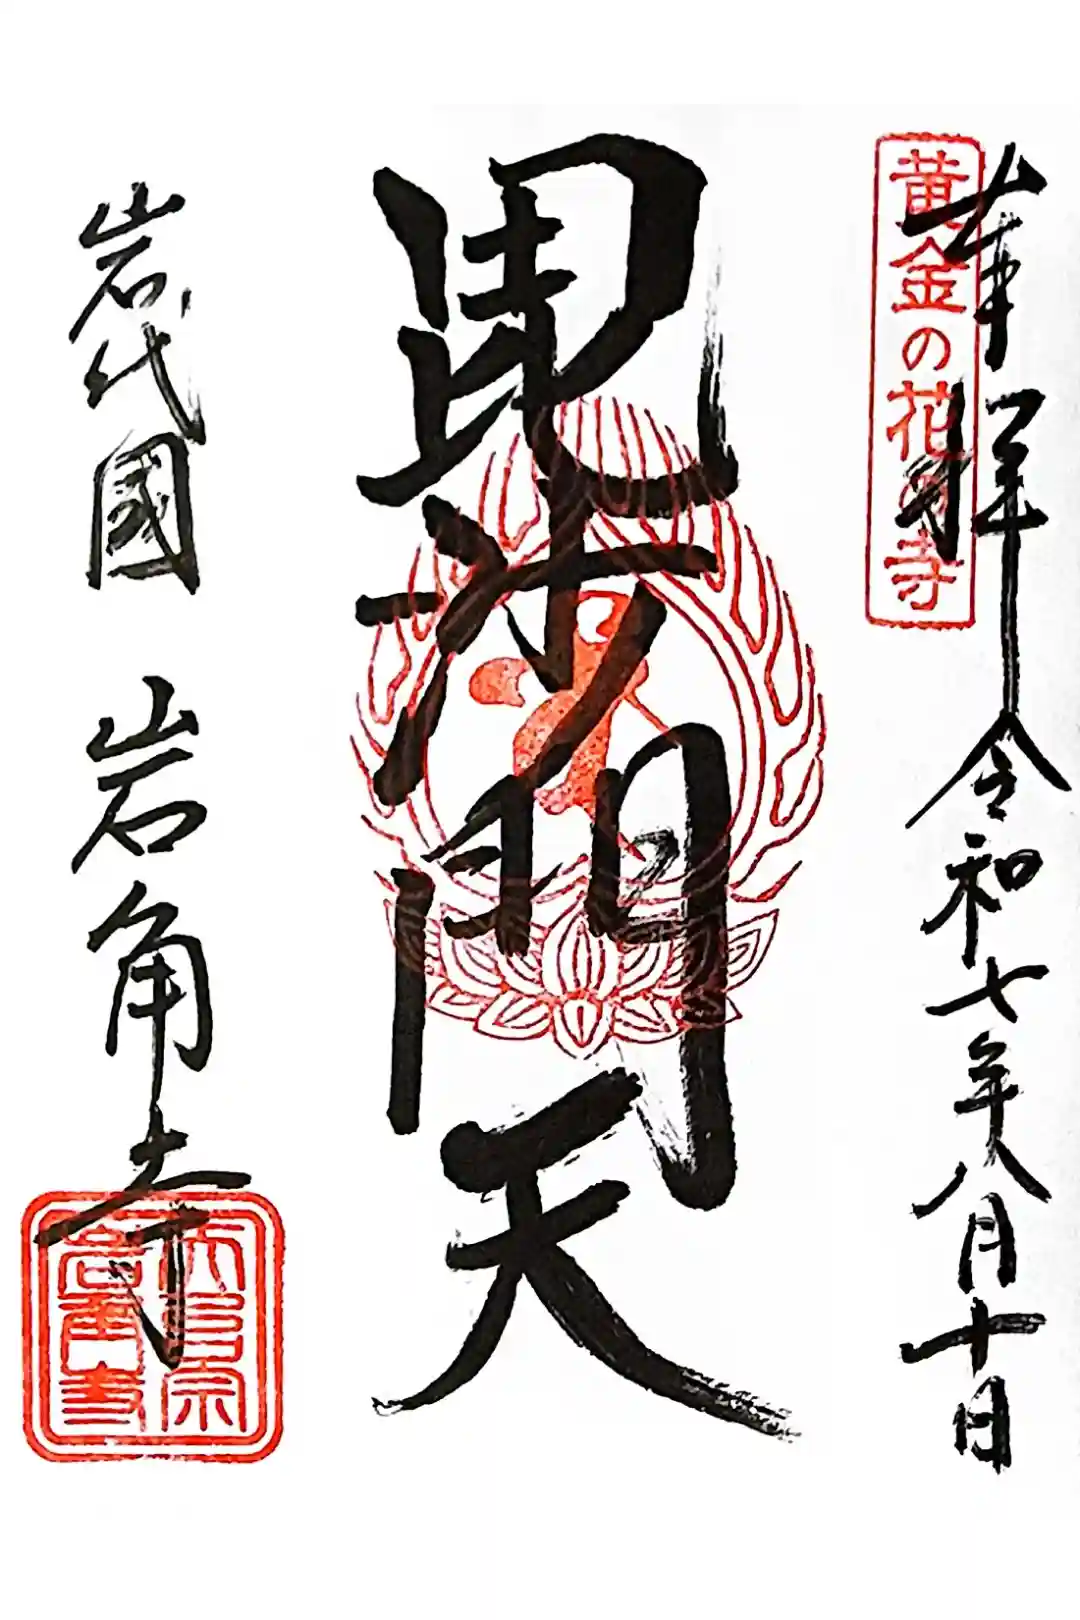 奉拝 令和七年八月十日
黄金の花の寺
毘沙門天
岩代國 岩角寺
天台宗
岩角寺